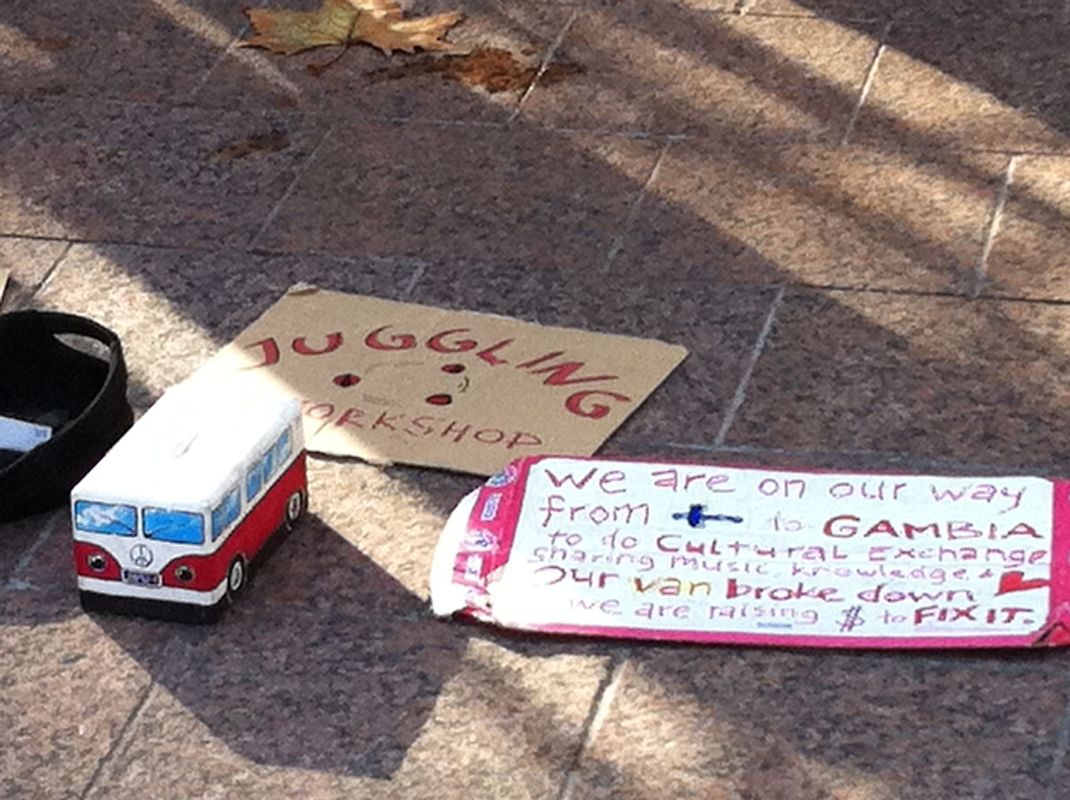 JUGGLING
WORKSHOP
we are on our way
from to GAMBIA
to do Cultural Exchange
sharing music, knowledge, &
Our van broke down
we are raising $ to FIX IT.